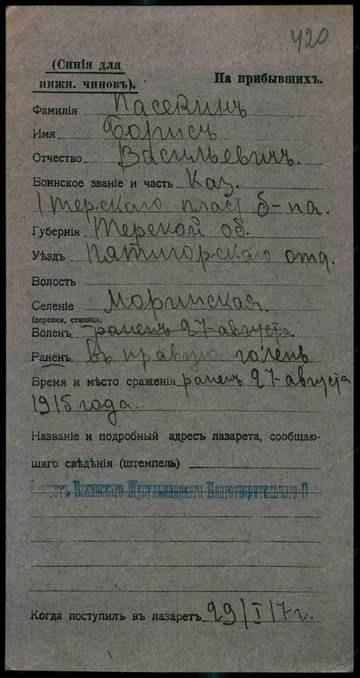 420
(Синія для
нижн. чиновъ).
На прибывшихъ.
Фамилія Пасевинъ
Имя Борисъ
Отчество Васильевичъ.
Воинское званіе и часть Каз.
1 терскаго плас б-на.
Губернія Терской об.
Уѣздъ Пятигорскаго отд.
Волость
Селеніе Моринская.
(деревня, станица)
Боленъ раненъ 27-августа
Раненъ въ правую голень
Время и мѣсто сраженія раненъ 27-августа
1915 года.
Названіе и подробный адресъ лазарета, сообщаю-
щаго свѣдѣнія (штемпель)
Бакинскаго Мусульманскаго Благотворительно-О
Когда поступилъ въ лазаретъ 29/I 17 г.